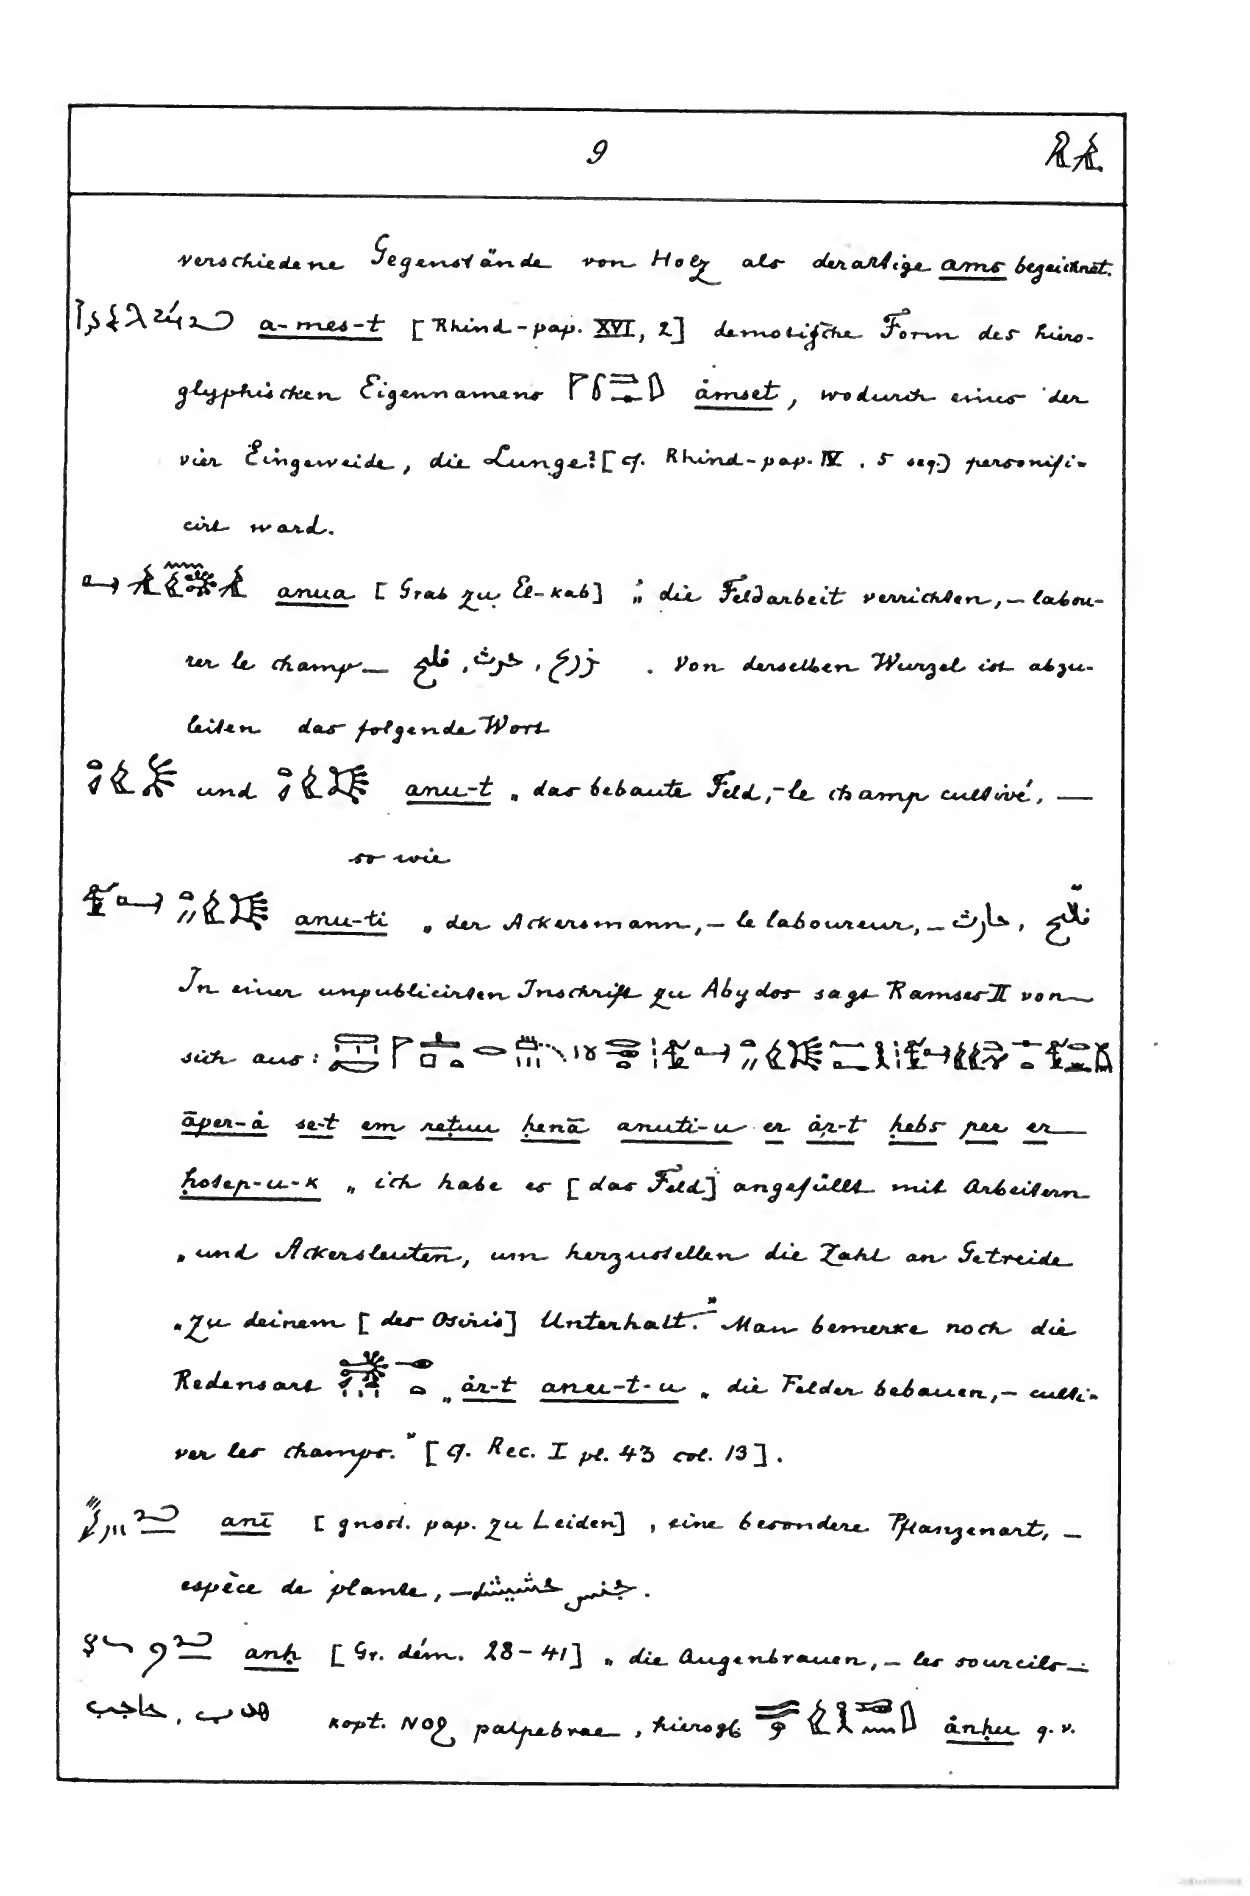 9
verschiedene Gegenstände von Holz als derartige ams bezeichnet.
a-mes-t [Rhind-pap. XVI, 2] demotische Form des hiero-
glyphischen Eigennamens åmset, wodurch eines der
vier Eingeweide, die Lunge? [cf. Rhind-pap. IV. 5 seq.) personifi-
cirt ward.
anua [Grab zu El-kab] „die Feldarbeit verrichten, – labou-
rer le champ – فلح, حرث, زرع. Von derselben Wurzel ist abzu-
leiten das folgende Wort
und anu-t „das bebaute Feld, – le champ cultivé, —
so wie
anu-ti „der Ackersmann, – le laboureur, – حارث, فلّاح
In einer unpublicirten Inschrift zu Abydos sagt Ramses II von
sich aus:
āper-å se-t em reṭuu ḥenā anuti-u er år-t ḥebs per er
ḥotep-u-k „ich habe es [das Feld] angefüllt mit Arbeitern
„und Ackersleuten, um herzustellen die Zahl an Getreide
„zu deinem [des Osiris] Unterhalt.” Man bemerke noch die
Redensart „år-t anu-t-u „die Felder bebauen, – culti-
ver les champs.” [cf. Rec. I pl. 43 col. 13].
anī [gnost. pap. zu Leiden], eine besondere Pflanzenart, –
espèce de plante, – جنس حشيشة.
anḥ [Gr. dém. 28-41] „die Augenbrauen, – les sourcils –
هدب, حاجب kopt. ⲛⲟϩ palpebrae, hierogl. ånḥu q. v.